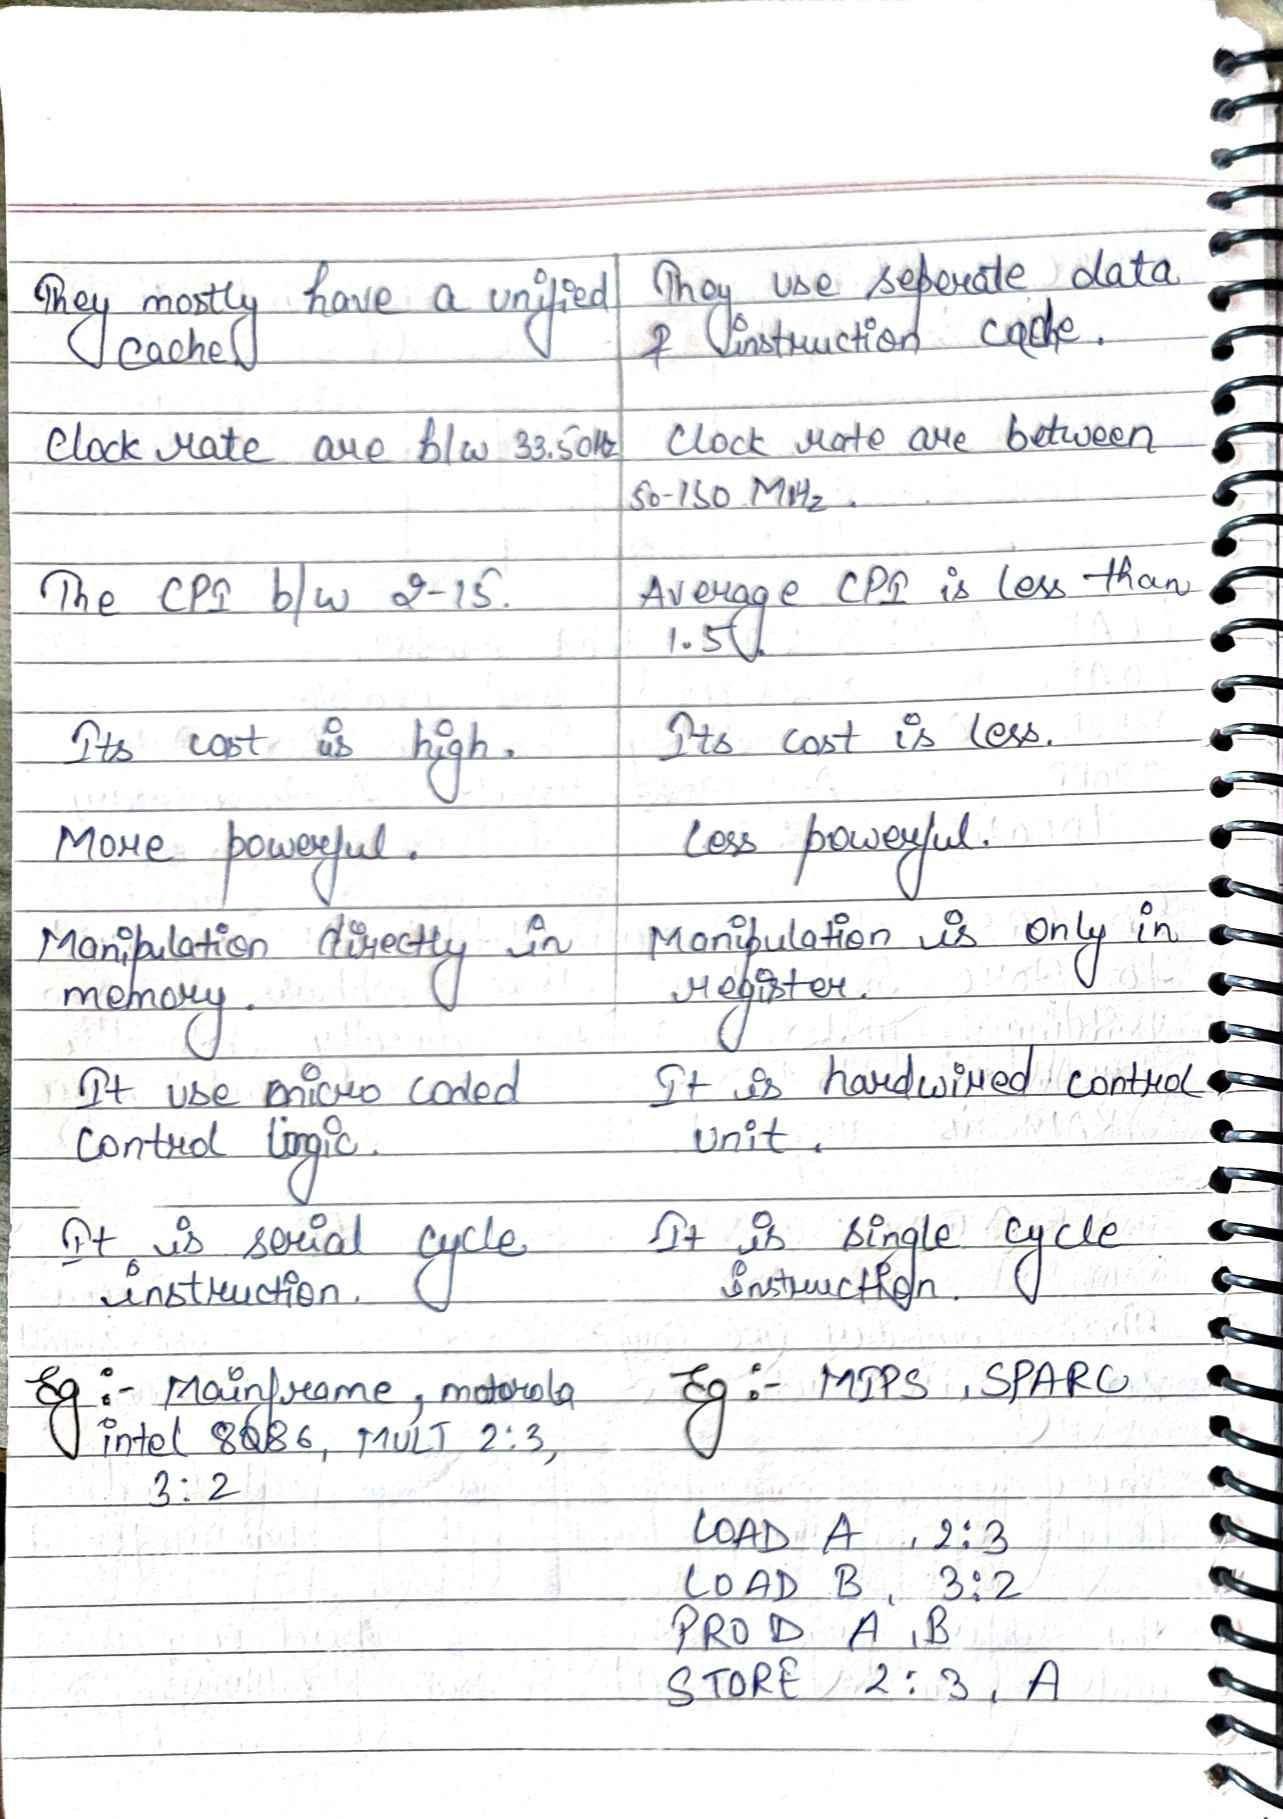 They mostly have a unified
cache
They use seperate data
& instruction cache.
Clock rate are b/w 33.50Hz
Clock rate are between
50-150 MHz.
The CPI b/w 2-15.
Average CPI is less than
1.5.
Its cost is high.
Its cost is less.
More powerful.
Less powerful.
Manipulation directly in
memory.
Manipulation is only in
register.
It use micro coded
control logic.
It is hardwired control
unit.
It is serial cycle
instruction.
It is single cycle
instruction.
Eg :- Mainframe, motorola
intel 8086, MULT 2:3,
3:2
Eg :- MIPS, SPARC
LOAD A, 2:3
LOAD B, 3:2
PROD A, B
STORE 2:3, A